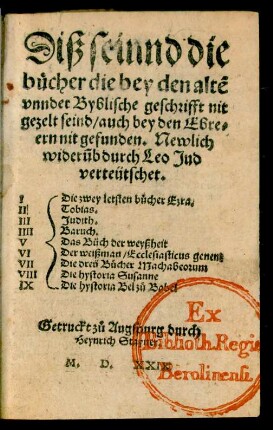 Diß seinnd die
bücher die bey den altẽ
vnnder Byblische geschrifft nit
gezelt seind/auch bey den Ebre-
ern nit gefunden. Newlich
widerũb durch Leo Jud
verteütschet.
I Die zwey letsten bücher Ezra.
II Tobias.
III Judith.
IIII Baruch.
V Das Büch der weyßheit
VI Der weißman/Ecclesiasticus genent
VII Die dreü Bücher Machabeorum
VIII Die hystoria Susanne
IX Die hystoria Bel zů Babel
Getruckt zů Augspurg durch
Heynrich Stayner
M. D. XXIX
Ex
Biblioth. Regia
Berolinensi.